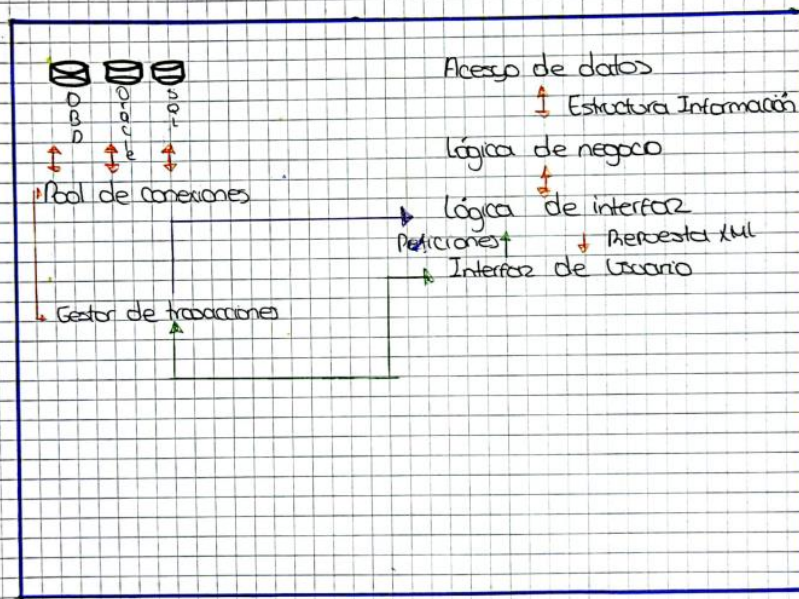 DBD
Oracle
SQL
Pool de conexiones
Gestor de trasacciones
Aceso de datos
Estructura Información
Lógica de negoco
Lógica de interfaz
Peticiones
Repuesta XML
Interfaz de Usuario